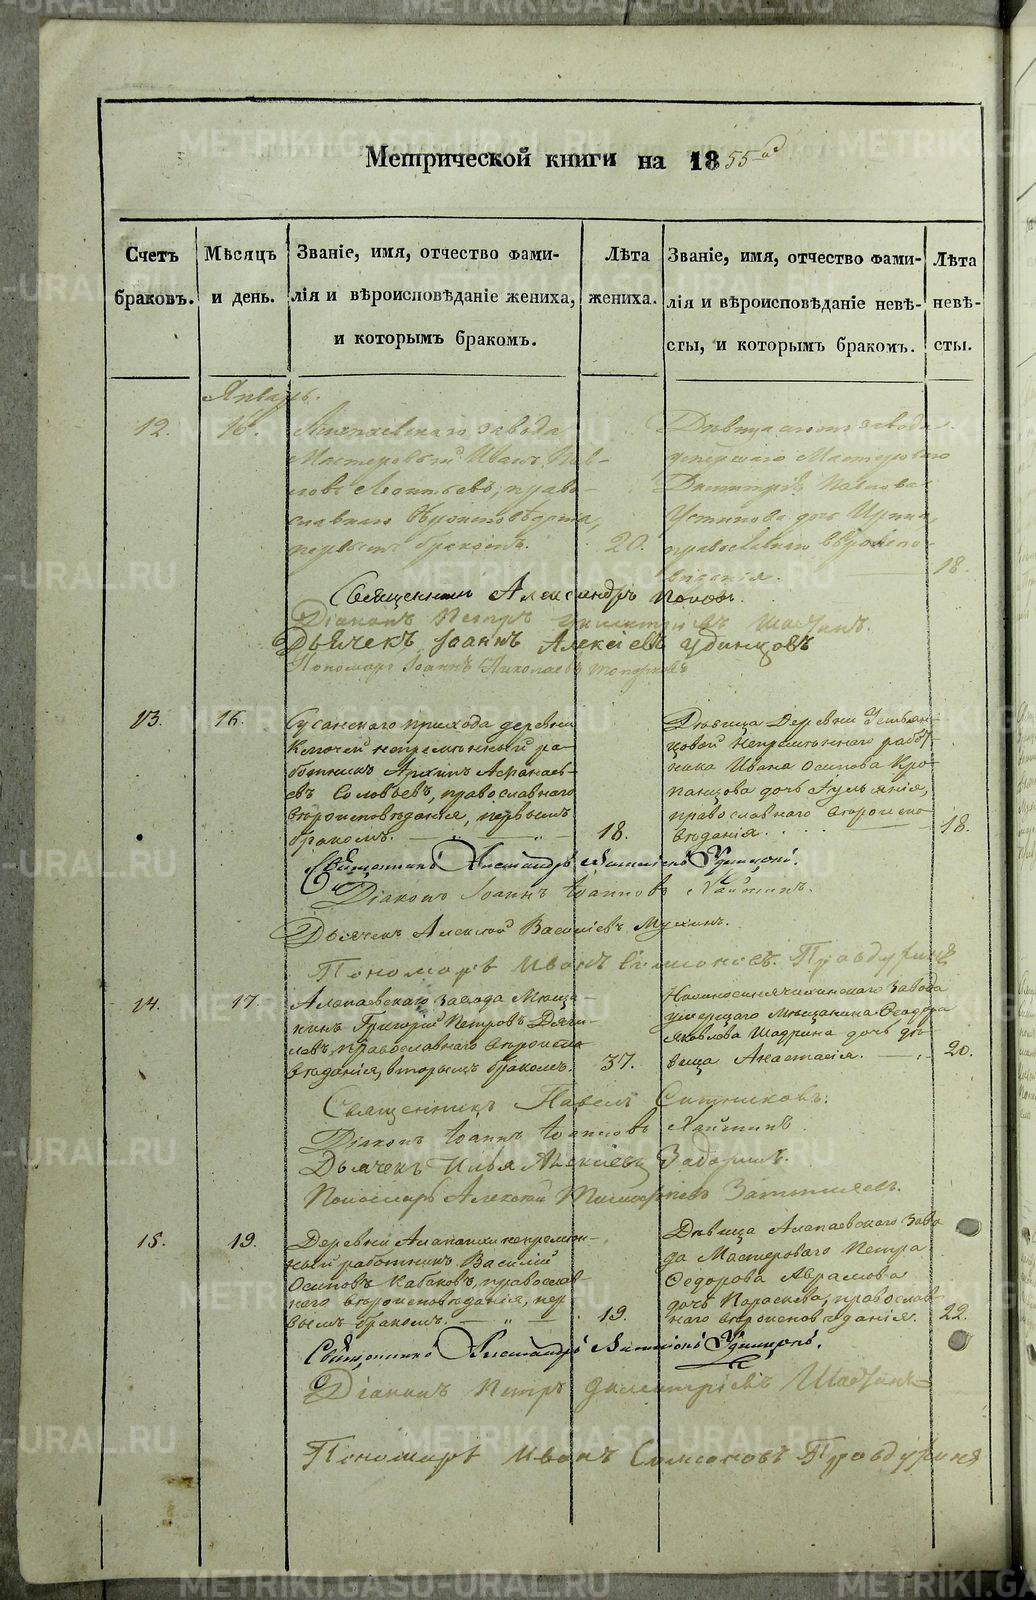 Метрической книги на 1855 а҃
Счетъ браковъ.
Мѣсяцъ и день.
Званіе, имя, отчество фами-
лія и вѣроисповѣданіе жениха,
и которымъ бракомъ.
Лѣта жениха.
Званіе, имя, отчество фами-
лія и вѣроисповѣданіе невѣ-
сты, и которымъ бракомъ.
Лѣта невѣ-
сты.
Январь.
12.
16.
Алапаевскаго завода
Мастеровый Иванъ Пав-
ловъ Леонтьевъ, право-
славнаго вѣроисповѣданія,
первымъ бракомъ.
20.
Дѣвица завода
умершаго Мастероваго
Димитрія Павлова
Устинова дочь Ирина,
православнаго вѣроиспо-
вѣданія.
18.
Священникъ Александръ Поповъ.
Діаконъ Петръ Димитріевъ
Дьячекъ Іоаннъ Алексіевъ Удинцовъ
Пономарь Іоаннъ Николаевъ Топорковъ
13.
16.
Сусанскаго прихода деревни
Ключей непремѣнный ра-
ботникъ Архипъ Афанась-
евъ Соловьевъ, православнаго
вѣроисповѣданія, первымъ
бракомъ.
18.
Дѣвица Деревни Устьян-
цовой непремѣннаго работ-
ника Ивана Осипова Кро-
панцова дочь Іульянія,
православнаго вѣроиспо-
вѣданія.
18.
Священникъ Александръ Удинцовъ.
Діаконъ Іоаннъ Іоанновъ
Дьячекъ Алексій Василіевъ Мухинъ.
Пономарь Иванъ Симоновъ Правдухинъ
14.
17.
Алапаевскаго Завода Мѣща-
нинъ Григорій Петровъ Дяги-
левъ, православнаго вѣроиспо-
вѣданія, вторымъ бракомъ.
37.
Нижносинячихинскаго Завода
умершаго Мѣщанина Ѳеодора
Яковлева Шадрина дочь дѣ-
вица Анастасія.
20.
Священникъ Павелъ Ситниковъ.
Діаконъ Іоаннъ Іоанновъ
Дьячекъ Илья Алексіевъ Задоринъ.
Пономарь Алексій Тимофеевъ
15.
19.
Деревни Алапаихи непремѣн-
ный работникъ Василій
Осиповъ Кабаковъ, православ-
наго вѣроисповѣданія, пер-
вымъ бракомъ.
19.
Дѣвица Алапаевскаго Заво-
да Мастероваго Петра
Ѳедорова Аврамова
дочь Параскева, православ-
наго вѣроисповѣданія.
22.
Священникъ Александръ Удинцовъ.
Діаконъ Петръ Димитріевъ
Пономарь Иванъ Симоновъ Правдухинъ
METRIKI.GASO-URAL.RU